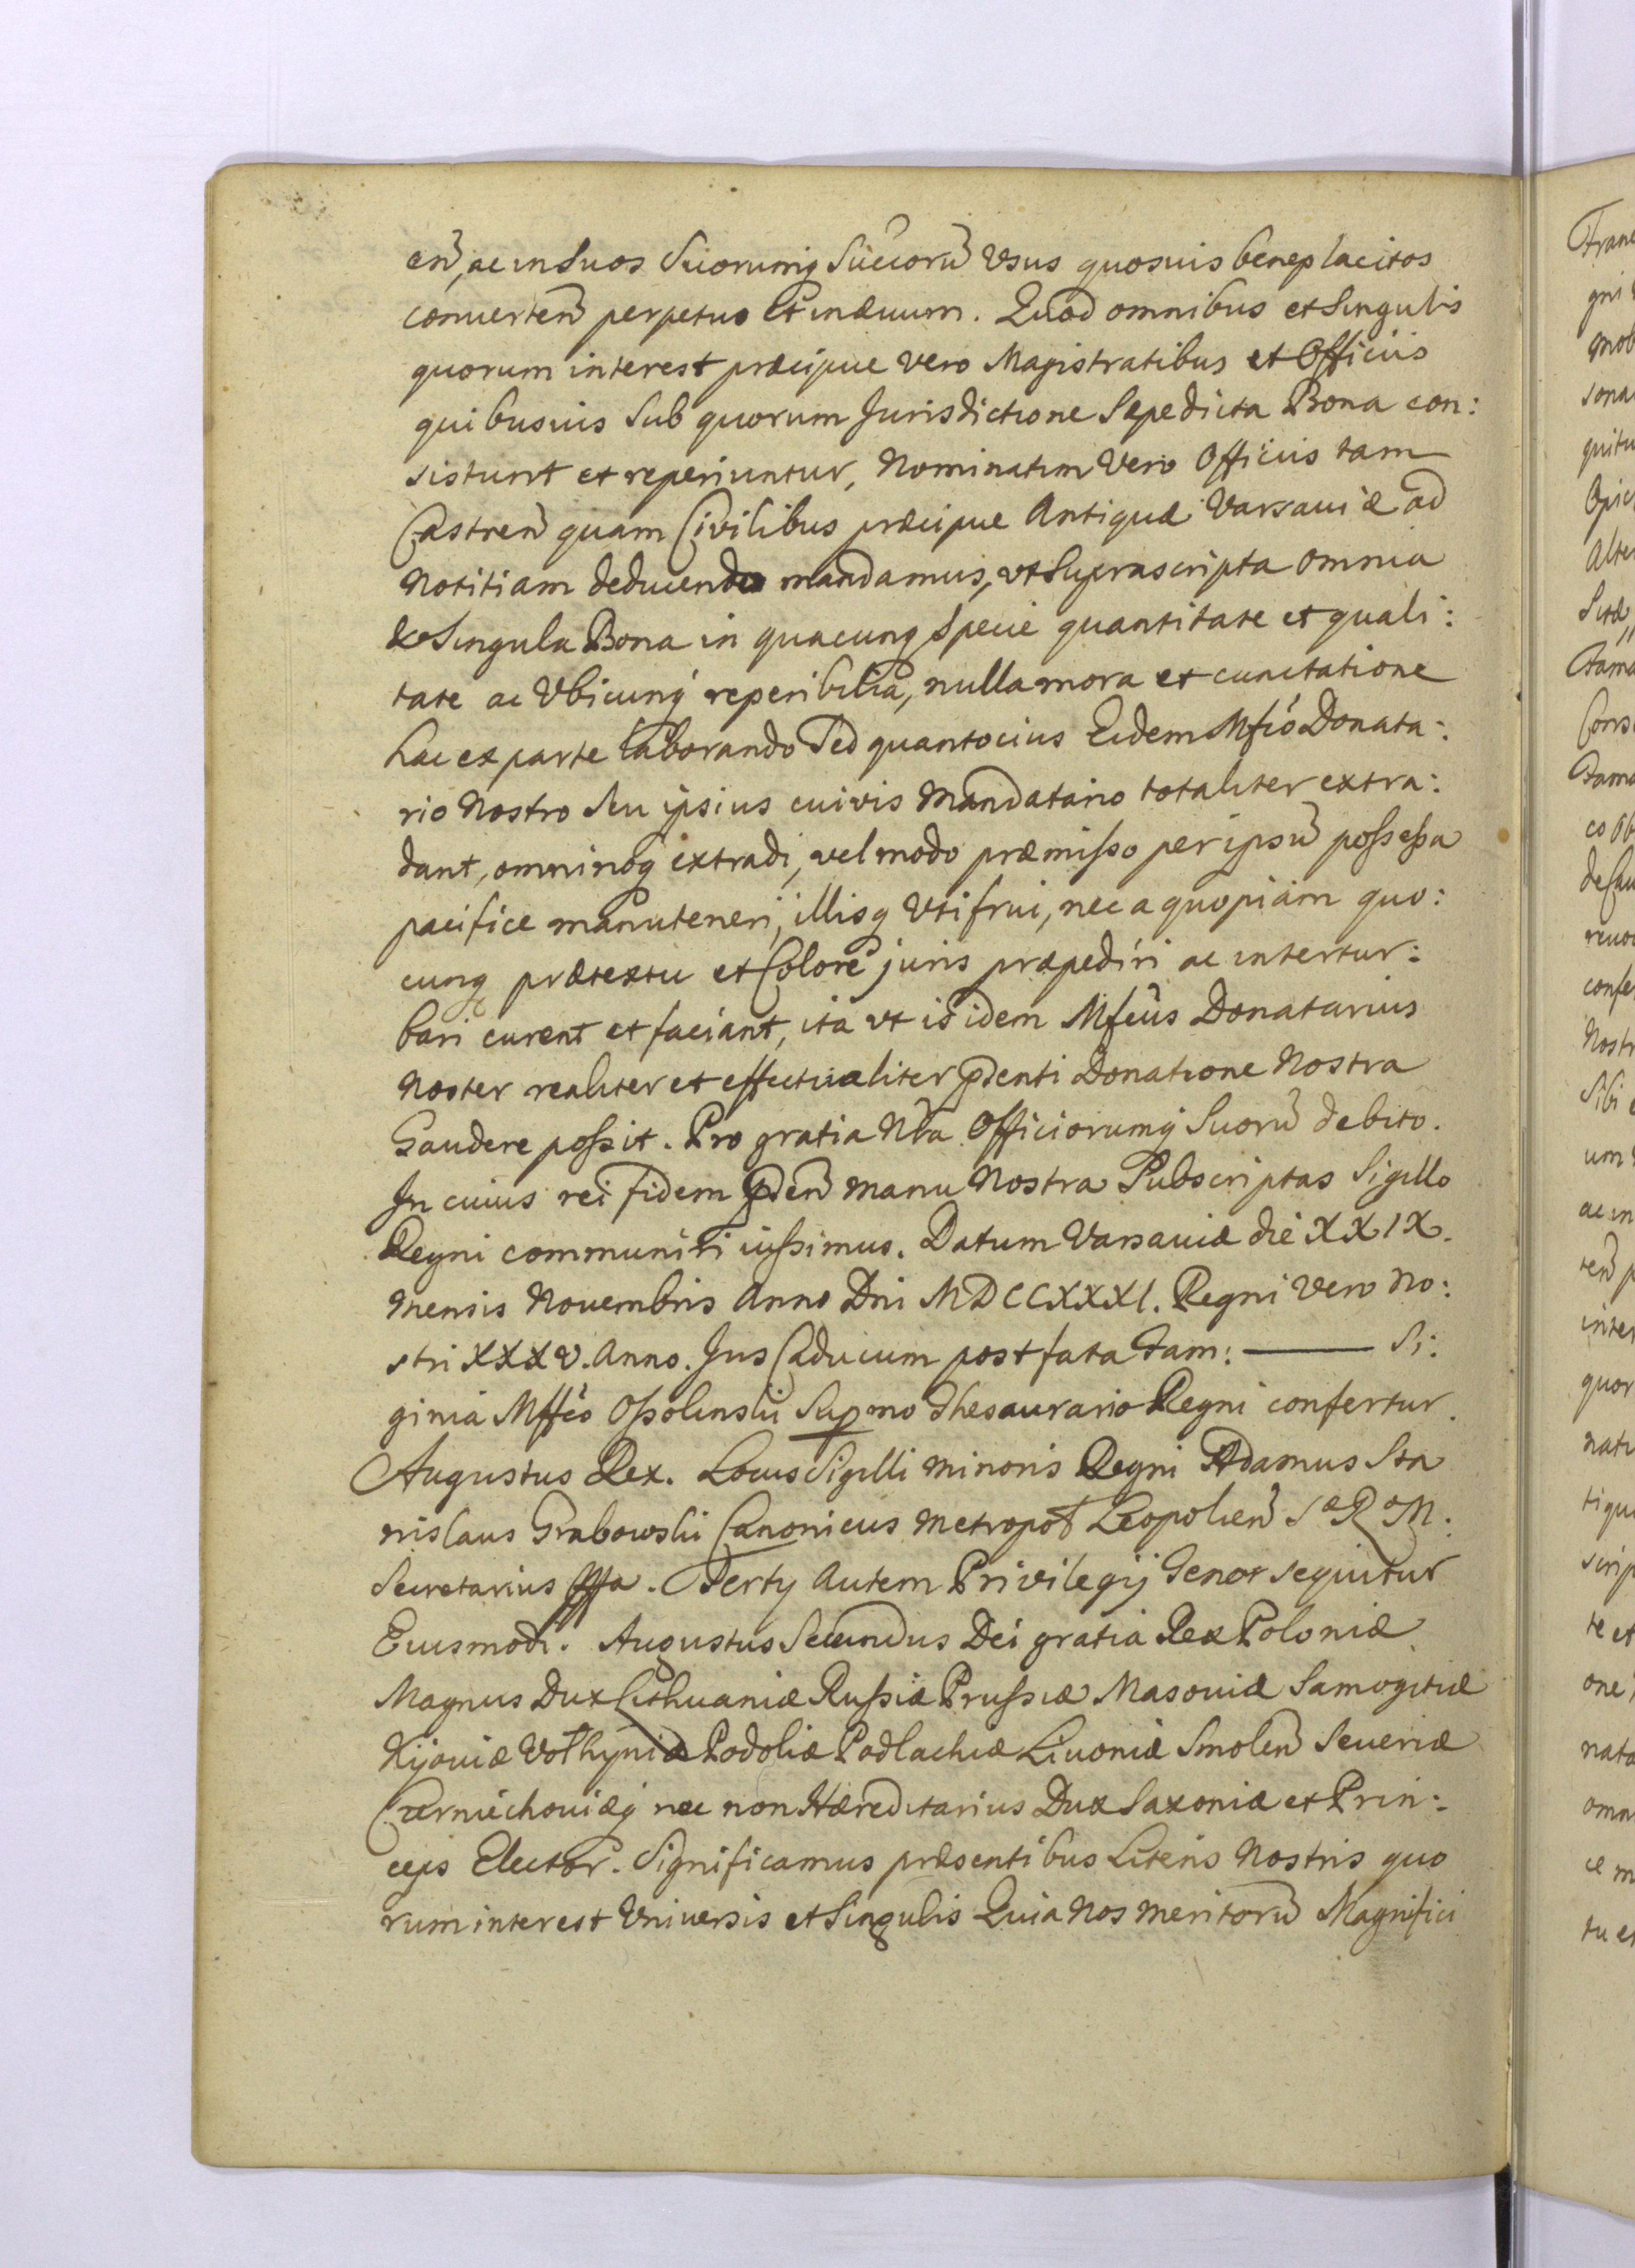 en̄, ac in Suos Suorumq̃ Succoru̅ Usus quosuis beneplacitos
conuerten̄ perpetuo et in ævum. Quod omnibus et Singulis
quorum interest præcipue vero Magistratibus et Officiis
quibusuis Sub quorum Jurisdictione Sæpedicta Bona con:
sistunt et reperiuntur, Nominatim Vero Officiis tam
Castren̄ quam Civilibus præcipue Antiquæ Varsauiæ ad
Notitiam deducendo mandamus, vt Suprascripta omnia
& Singula Bona in quacunq̃ Specie quantitate et quali:
tate ac Vbicunq̃ reperibilia, nulla mora et cunctatione
hac ex parte laborando Sed quantocius Eidem Mfco Donata:
rio Nostro Seu ipsius cuivis Mandatario totaliter extra:
dant, omninoq̃ extradi, vel modo præmisso per ipsu̅ possessa
pacifice manuteneri, illisq̃ Vti frui, nec a quopiam quo:
cunq̃ prætextu et Colore juris præpediri ac intertur:
bari curent et faciant, ita vt is idem Mfcus Donatarius
Noster realiter et effectualiter p̄denti Donatione Nostra
Gaudere possit. Pro gratia Nra Officiorumq̃ Suoru̅ debito.
In cuius rei fidem p̄den̄ manu Nostra Subscriptas Sigillo
Regni communiri iussimus. Datum Varsauiæ die XXIX.
Mensis Nouembris Anno Dni MDCCXXXI. Regni Vero No:
stri XXXV. Anno. Jus Caducum post fata Fam: ——— Si:
ginia Mffco Ossolinski Supmo Thesaurario Regni confertur.
Augustus Rex. Locus Sigilli minoris Regni Adamus Sta
nislaus Grabowski Canonicus Metropol Leopolien̄ S R M.
Secretarius . Tertÿ Autem Privilegÿ Tenor sequitur
Eiusmodi. Augustus Secundus Dei gratia Rex Poloniæ
Magnus Dux Lithuaniæ Russiæ Prussiæ Masouiæ Samogitiæ
Kijouiæ Volhyniæ Podoliæ Podlachiæ Liuoniæ Smolen̄ Seueriæ
Czerniechouiæq̃ nec non Hæreditarius Dux Saxoniæ et Prin:
ceps Elector. Significamus præsentibus Literis Nostris quo
rum interest Vniuersis et Singulis Quia Nos meritoru̅ Magnifici